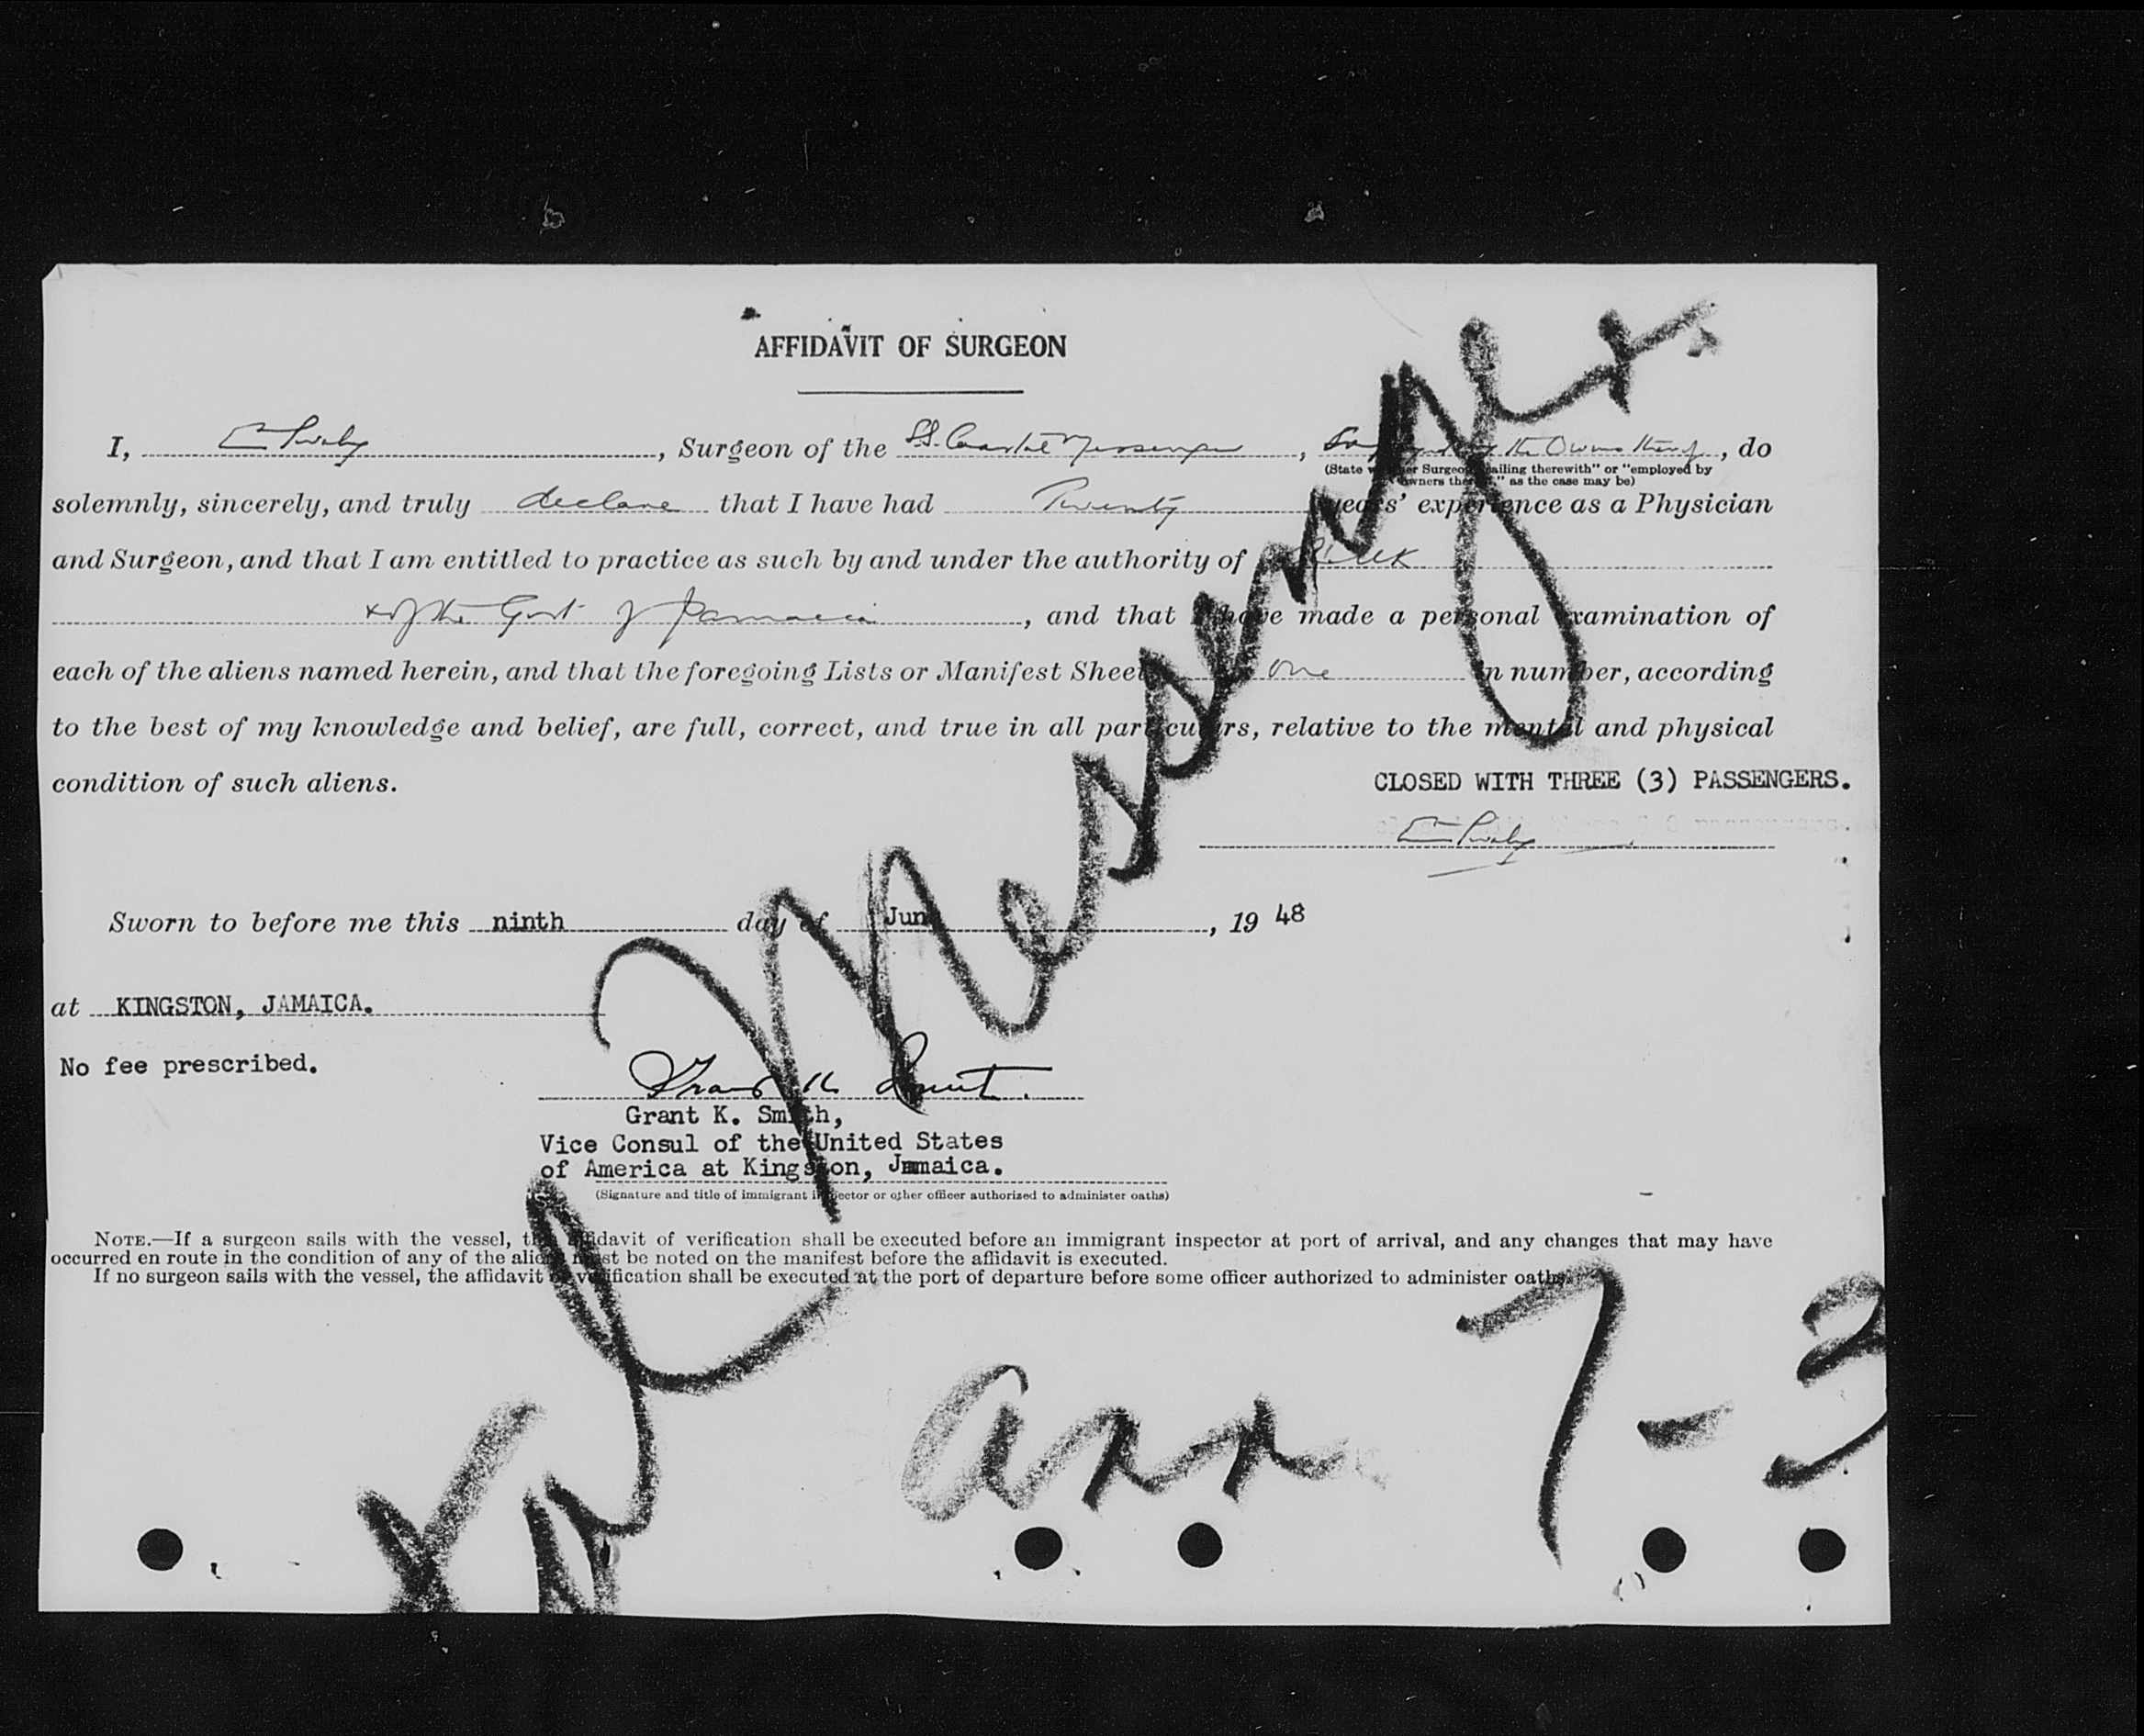 AFFIDAVIT OF SURGEON
I, , Surgeon of the S.S. Coastal Messenger, the Owners thereof, do
(State Surgeon sailing therewith" or "employed by
owners thereof," as the case may be)
solemnly, sincerely, and truly declare that I have had Twenty years' experience as a Physician
and Surgeon, and that I am entitled to practice as such by and under the authority of
of the Govt of Jamaica, and that I have made a personal examination of
each of the aliens named herein, and that the foregoing Lists or Manifest Sheets, one in number, according
to the best of my knowledge and belief, are full, correct, and true in all particulars, relative to the mental and physical
condition of such aliens.
CLOSED WITH THREE (3) PASSENGERS.
Sworn to before me this ninth day of June, 19 48
at KINGSTON, JAMAICA.
No fee prescribed.
Grant K. Smith
Grant K. Smith,
Vice Consul of the United States
of America at Kingston, Jamaica.
(Signature and title of immigrant inspector or other officer authorized to administer oaths)
NOTE.—If a surgeon sails with the vessel, the affidavit of verification shall be executed before an immigrant inspector at port of arrival, and any changes that may have
occurred en route in the condition of any of the aliens must be noted on the manifest before the affidavit is executed.
If no surgeon sails with the vessel, the affidavit of verification shall be executed at the port of departure before some officer authorized to administer oaths.
Messenger
7-3